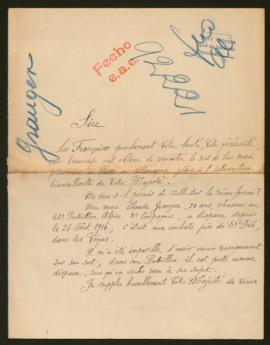 Granger
Fecho
e.a.c.
Sire
Les Françaises proclament Votre bonté, Votre générosité,
car beaucoup ont obtenu de connaître le sort de leur mari
prisonnier ou blessé en Allemagne grâce à l'intervention
bienveillante de Votre Majesté.
Me sera-t-il permis de solliciter la même faveur ?
Mon mari Claude Granger, 22 ans, chasseur au
62e Bataillon Alpin, 8e Compagnie, a disparu depuis
le 26 Août 1916, c'était aux combats près de St Dié,
dans les Vosges.
Il m'a été impossible d'avoir aucun renseignement
sur son sort; dans son Bataillon il est porté comme
disparu, sans qu'on sache rien à son sujet.
Je supplie humblement Votre Majesté de venir